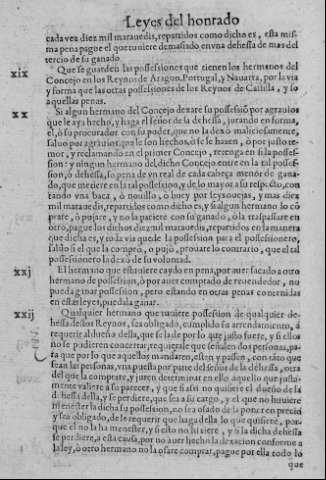 Leyes del honrado
cada vez diez mil marauedis, repartidos como dicho es, esta mis-
ma pena pague el que tuuiere demasiado en vna dehessa de mas del
tercio de su ganado
xix
Que se guarden las possessiones que tienen los hermanos del
Concejo en los Reynos de Aragon, Portugal, y Nauarra, por la via
y forma que las otras possessiones de los Reynos de Castilla, y so
aquellas penas.
xx
Si algun hermano del Concejo dexare su possessiõ por agrauios
que le aya hecho, y haga el señor de la dehessa, jurando en forma,
el, ò su procurador con su poder, que no la dexò maliciosamente,
saluo por agrauios que le son hechos, ò se le hazen, ò por justo te-
mor, y reclamando en el primer Concejo, retenga en si la posses-
sion: y ningun hermano del dicho Concejo entre en la tal posses-
siõ, ò dehessa, so pena de vn real de cada cabeça menor de gana-
do, que metiere en la tal possession, y de lo mayor a su respecto, con
tando vna baca, ò nouillo, ò buey por seys ouejas, y mas diez
mil marauedis, repartidos como dicho es, y si algun hermano lo cõ
prare, ò pujare, y no la paciere con su ganado, ò la traspassare en
otro, pague los dichos diez mil marauedis, repartidos en la manera
que dicha es, y toda via quede la possession para el possessionero,
saluo si el que la compro, o pujò, prouare lo contrario, que el tal
possessionero la dexò de su voluntad.
xxj
El hermano que estuuiere caydo en pena, por auer sacado a otro
hermano de possession, ò por auer comprado de reuendedor, no
pueda ganar possession, pero estando en otras penas contenidas
en estas leyes, puedala ganar.
xxij
Qualquier hermano que tuuiere possession de qualquier de-
hessa destos Reynos, sea obligado, cumplido su arrendamiento, á
requerir al dueño della, que se la de por lo que justo fuere, y si ellos
no se pudieren concertar, requierale que señalen dos personas, pa-
ra que por lo que aquellos mandaren, esten y passen, con tãto que
sean las personas, vna puesta por parte del señor de la dehessa, otra
del que la comprare, y juren determinar en ello aquello que justa-
mente valiere a su parecer, y que si assi no quisiere el dueño de la
dicha dehessa, y se perdiere, que sea a su cargo, y el que no huuiere
menester la dicha su possession, no sea osado de la poner en precio
y sea obligado, de le requerir que haga della lo que quisiere, por-
que el no la ha menester, y si esto no hiziere, y si la dicha dehessa
se perdiere, a esta causa, por no auer hecho la dexacion conforme a
la ley, ò otro hermano no la osare comprar, pague por ella todo lo
que